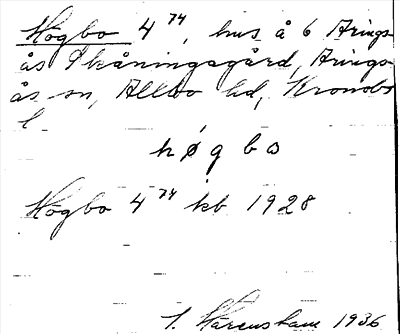 Högbo 4⁷⁴, hus å 6 Arings-
ås Skåningsgård, Arings-
ås sn, Allbo hd, Kronobs
l
høgbo
Högbo 4⁷⁴ kb 1928
1936